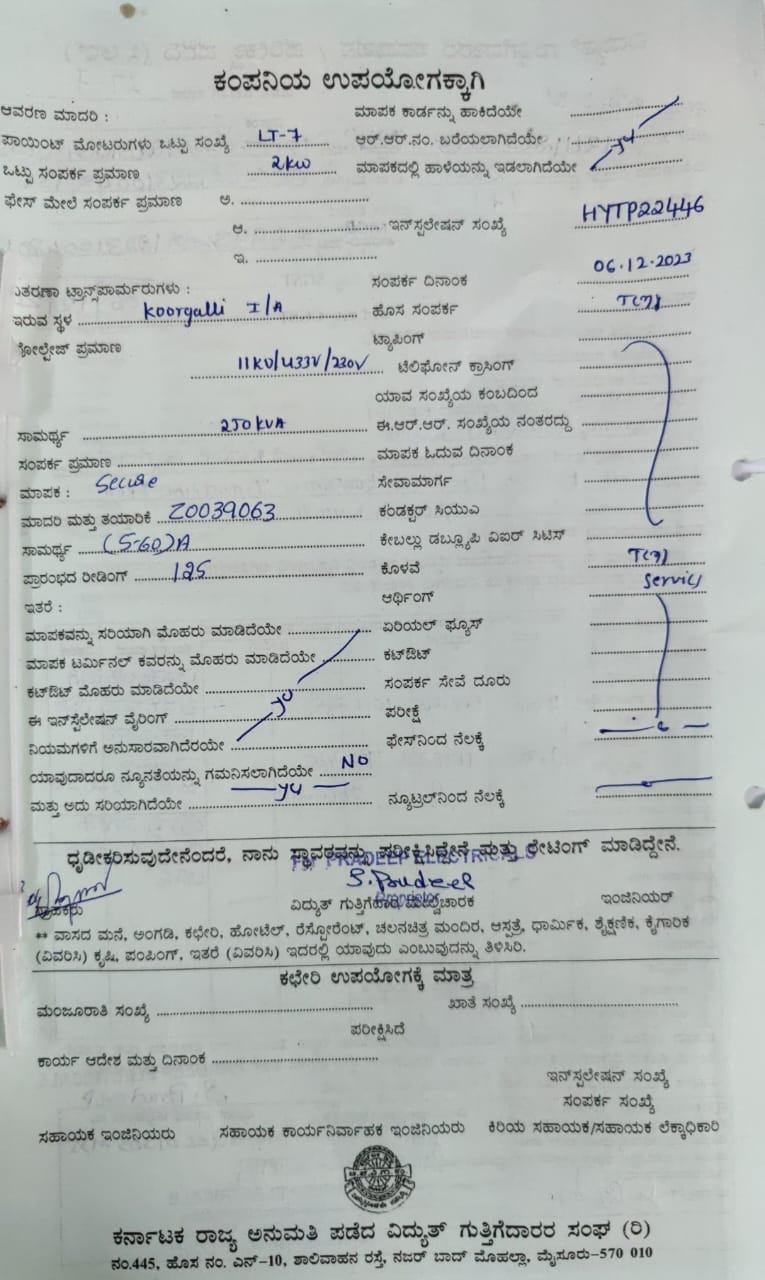 ಕಂಪನಿಯ ಉಪಯೋಗಕ್ಕಾಗಿ
ಆವರಣ ಮಾದರಿ : ಮಾಪಕ ಕಾರ್ಡನ್ನು ಹಾಕಿದೆಯೇ
ಪಾಯಿಂಟ್ ಮೋಟರುಗಳು ಒಟ್ಟು ಸಂಖ್ಯೆ LT-7 ಆರ್.ಆರ್.ನಂ. ಬರೆಯಲಾಗಿದೆಯೇ
ಒಟ್ಟು ಸಂಪರ್ಕ ಪ್ರಮಾಣ 2kw ಮಾಪಕದಲ್ಲಿ ಹಾಳೆಯನ್ನು ಇಡಲಾಗಿದೆಯೇ
ಫೇಸ್ ಮೇಲೆ ಸಂಪರ್ಕ ಪ್ರಮಾಣ ಅ.
ಆ. ಇನ್‌ಸ್ಟಲೇಷನ್ ಸಂಖ್ಯೆ HYTP22446
ಇ.
ಸಂಪರ್ಕ ದಿನಾಂಕ 06.12.2023
ವಿತರಣಾ ಟ್ರಾನ್ಸ್‌ಪಾರ್ಮರುಗಳು :
ಇರುವ ಸ್ಥಳ Koorgalli I/A ಹೊಸ ಸಂಪರ್ಕ T(7)
ವೋಲ್ಟೇಜ್ ಪ್ರಮಾಣ ಟ್ಯಾಪಿಂಗ್
11KV/433V/230V ಟೆಲಿಫೋನ್ ಕ್ರಾಸಿಂಗ್
ಯಾವ ಸಂಖ್ಯೆಯ ಕಂಬದಿಂದ
ಸಾಮರ್ಥ್ಯ 250KVA ಈ.ಆರ್.ಆರ್. ಸಂಖ್ಯೆಯ ನಂತರದ್ದು
ಸಂಪರ್ಕ ಪ್ರಮಾಣ ಮಾಪಕ ಓದುವ ದಿನಾಂಕ
ಮಾಪಕ : Secure ಸೇವಾಮಾರ್ಗ
ಮಾದರಿ ಮತ್ತು ತಯಾರಿಕೆ Z0039063 ಕಂಡಕ್ಟರ್ ಸಿಯುಎ
ಸಾಮರ್ಥ್ಯ (5-60)A ಕೇಬಲ್ಲು ಡಬ್ಲ್ಯೂಪಿ ವಿಐರ್ ಸಿಟಿಸ್
ಪ್ರಾರಂಭದ ರೀಡಿಂಗ್ 125 ಕೊಳವೆ T(7)
ಇತರೆ : ಆರ್ಥಿಂಗ್ Service
ಮಾಪಕವನ್ನು ಸರಿಯಾಗಿ ಮೊಹರು ಮಾಡಿದೆಯೇ ಏರಿಯಲ್ ಫ್ಯೂಸ್
ಮಾಪಕ ಟರ್ಮಿನಲ್ ಕವರನ್ನು ಮೊಹರು ಮಾಡಿದೆಯೇ ಕಟ್‌ಔಟ್
ಕಟ್‌ಔಟ್ ಮೊಹರು ಮಾಡಿದೆಯೇ ಸಂಪರ್ಕ ಸೇವೆ ದೂರು
ಈ ಇನ್‌ಸ್ಟೆಲೇಷನ್ ವೈರಿಂಗ್ ಪರೀಕ್ಷೆ
ನಿಯಮಗಳಿಗೆ ಅನುಸಾರವಾಗಿದೆರಯೇ ಫೇಸ್‌ನಿಂದ ನೆಲಕ್ಕೆ
ಯಾವುದಾದರೂ ನ್ಯೂನತೆಯನ್ನು ಗಮನಿಸಲಾಗಿದೆಯೇ NO
ಮತ್ತು ಅದು ಸರಿಯಾಗಿದೆಯೇ ನ್ಯೂಟ್ರಲ್‌ನಿಂದ ನೆಲಕ್ಕೆ
ಧೃಡೀಕರಿಸುವುದೇನೆಂದರೆ, ನಾನು ಸ್ಥಾವರವನ್ನು ಪರೀಕ್ಷಿಸಿದ್ದೇನೆ ಮತ್ತು ರೇಟಿಂಗ್ ಮಾಡಿದ್ದೇನೆ.
For PRADEEP ELECTRICALS
S.Pradeep
Proprietor
ವಿದ್ಯುತ್ ಗುತ್ತಿಗೆದಾರ ಮೇಲ್ವಿಚಾರಕ ಇಂಜಿನಿಯರ್
** ವಾಸದ ಮನೆ, ಅಂಗಡಿ, ಕಛೇರಿ, ಹೋಟೆಲ್, ರೆಸ್ಟೋರೆಂಟ್, ಚಲನಚಿತ್ರ ಮಂದಿರ, ಆಸ್ಪತ್ರೆ, ಧಾರ್ಮಿಕ, ಶೈಕ್ಷಣಿಕ, ಕೈಗಾರಿಕ
(ವಿವರಿಸಿ) ಕೃಷಿ, ಪಂಪಿಂಗ್, ಇತರೆ (ವಿವರಿಸಿ) ಇದರಲ್ಲಿ ಯಾವುದು ಎಂಬುವುದನ್ನು ತಿಳಿಸಿರಿ.
ಕಛೇರಿ ಉಪಯೋಗಕ್ಕೆ ಮಾತ್ರ
ಮಂಜೂರಾತಿ ಸಂಖ್ಯೆ ಖಾತೆ ಸಂಖ್ಯೆ
ಪರೀಕ್ಷಿಸಿದೆ
ಕಾರ್ಯ ಆದೇಶ ಮತ್ತು ದಿನಾಂಕ
ಇನ್‌ಸ್ಟಲೇಷನ್ ಸಂಖ್ಯೆ
ಸಂಪರ್ಕ ಸಂಖ್ಯೆ
ಸಹಾಯಕ ಇಂಜಿನಿಯರು ಸಹಾಯಕ ಕಾರ್ಯನಿರ್ವಾಹಕ ಇಂಜಿನಿಯರು ಕಿರಿಯ ಸಹಾಯಕ/ಸಹಾಯಕ ಲೆಕ್ಕಾಧಿಕಾರಿ
ಕರ್ನಾಟಕ ರಾಜ್ಯ ಅನುಮತಿ ಪಡೆದ ವಿದ್ಯುತ್ ಗುತ್ತಿಗೆದಾರರ ಸಂಘ (ರಿ)
ನಂ.445, ಹೊಸ ನಂ. ಎನ್-10, ಶಾಲಿವಾಹನ ರಸ್ತೆ, ನಜರ್ ಬಾದ್ ಮೊಹಲ್ಲಾ, ಮೈಸೂರು-570 010